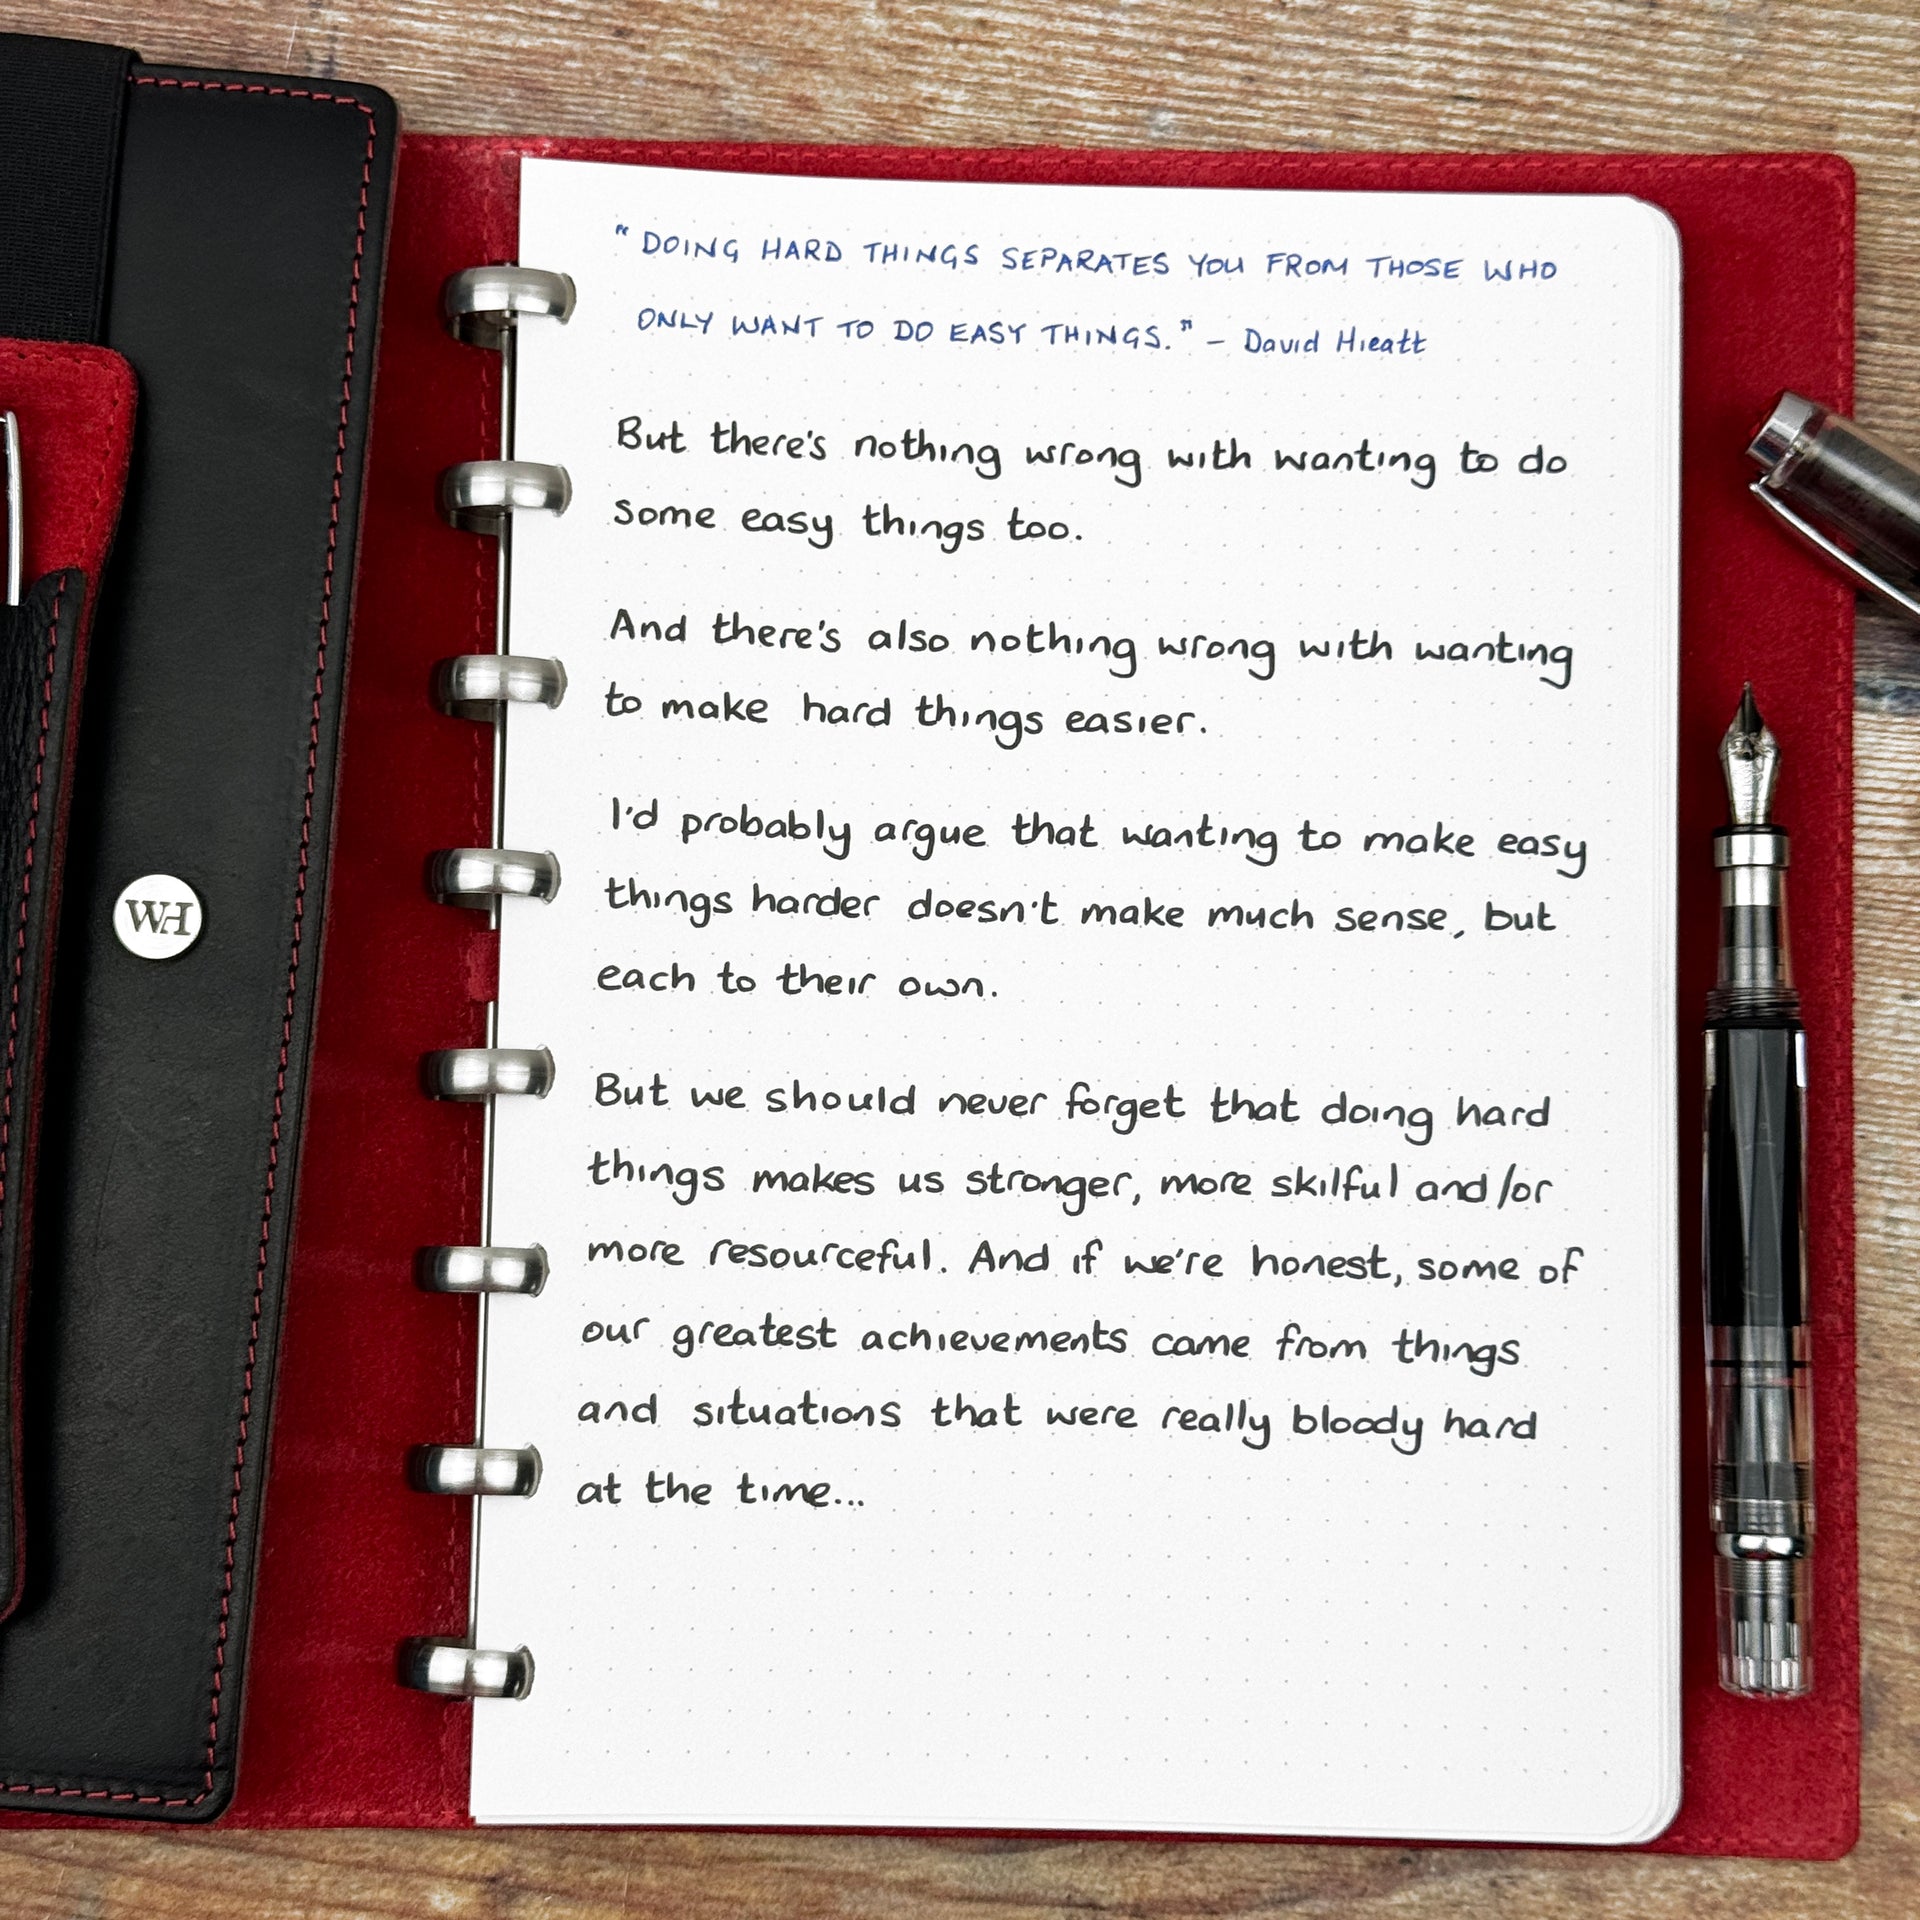 "DOING HARD THINGS SEPARATES YOU FROM THOSE WHO
ONLY WANT TO DO EASY THINGS." – David Hieatt
But there's nothing wrong with wanting to do
some easy things too.
And there's also nothing wrong with wanting
to make hard things easier.
I'd probably argue that wanting to make easy
things harder doesn't make much sense, but
each to their own.
But we should never forget that doing hard
things makes us stronger, more skilful and/or
more resourceful. And if we're honest, some of
our greatest achievements came from things
and situations that were really bloody hard
at the time...
WH